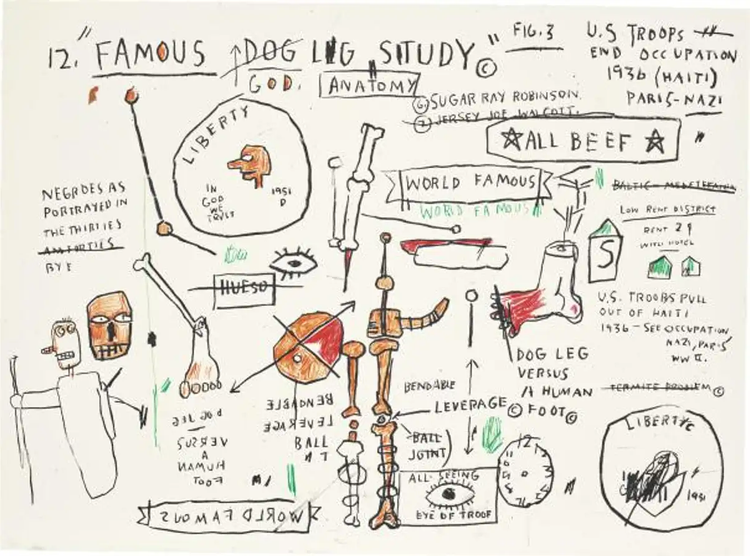 12. "FAMOUS DOG LEG STUDY" ©
GOD. ANATOMY
FIG. 3
U.S TROOPS
END OCCUPATION
1936 (HAITI)
PARIS-NAZI
⑥ SUGAR RAY ROBINSON.
② JERSEY JOE WALCOTT.
☆ ALL BEEF ☆
LIBERTY
IN
GOD
WE
TRUST
1951
D
WORLD FAMOUS
WORLD FAMOUS
NEGROES AS
PORTRAYED IN
THE THIRTIES
AN FORTIES
BYE
LOW RENT DISTRICT
RENT 29
WITH HOTEL
S
HUESO
U.S. TROOBS PULL
OUT OF HAITI
1936 - SEE OCCUPATION
NAZI, PARIS
WW II.
DOG LEG
VERSUS
A HUMAN
FOOT ©
TERMITE PROBLEM ©
BENDABLE
LEVERAGE ©
BALL
JOINT)
DOG LEG
VERSUS
A
HUMAN
FOOT
BENDABLE
LEVERAGE
BALL
ALL SEEING
EYE OF TROOF
12
LIBERTY ©
1951
WORLD FAMOUS